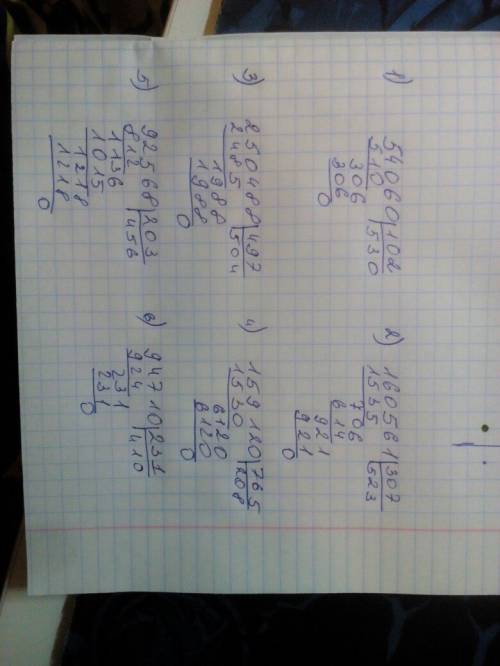 1)
54060 102
510 530
306
306
0
2)
160561 307
1535 523
706
614
921
921
0
3)
250488 497
2485 504
1988
1988
0
4)
159120 765
1530 208
6120
6120
0
5)
92568 203
812 456
1136
1015
1218
1218
0
6)
94710 231
924 410
231
231
0